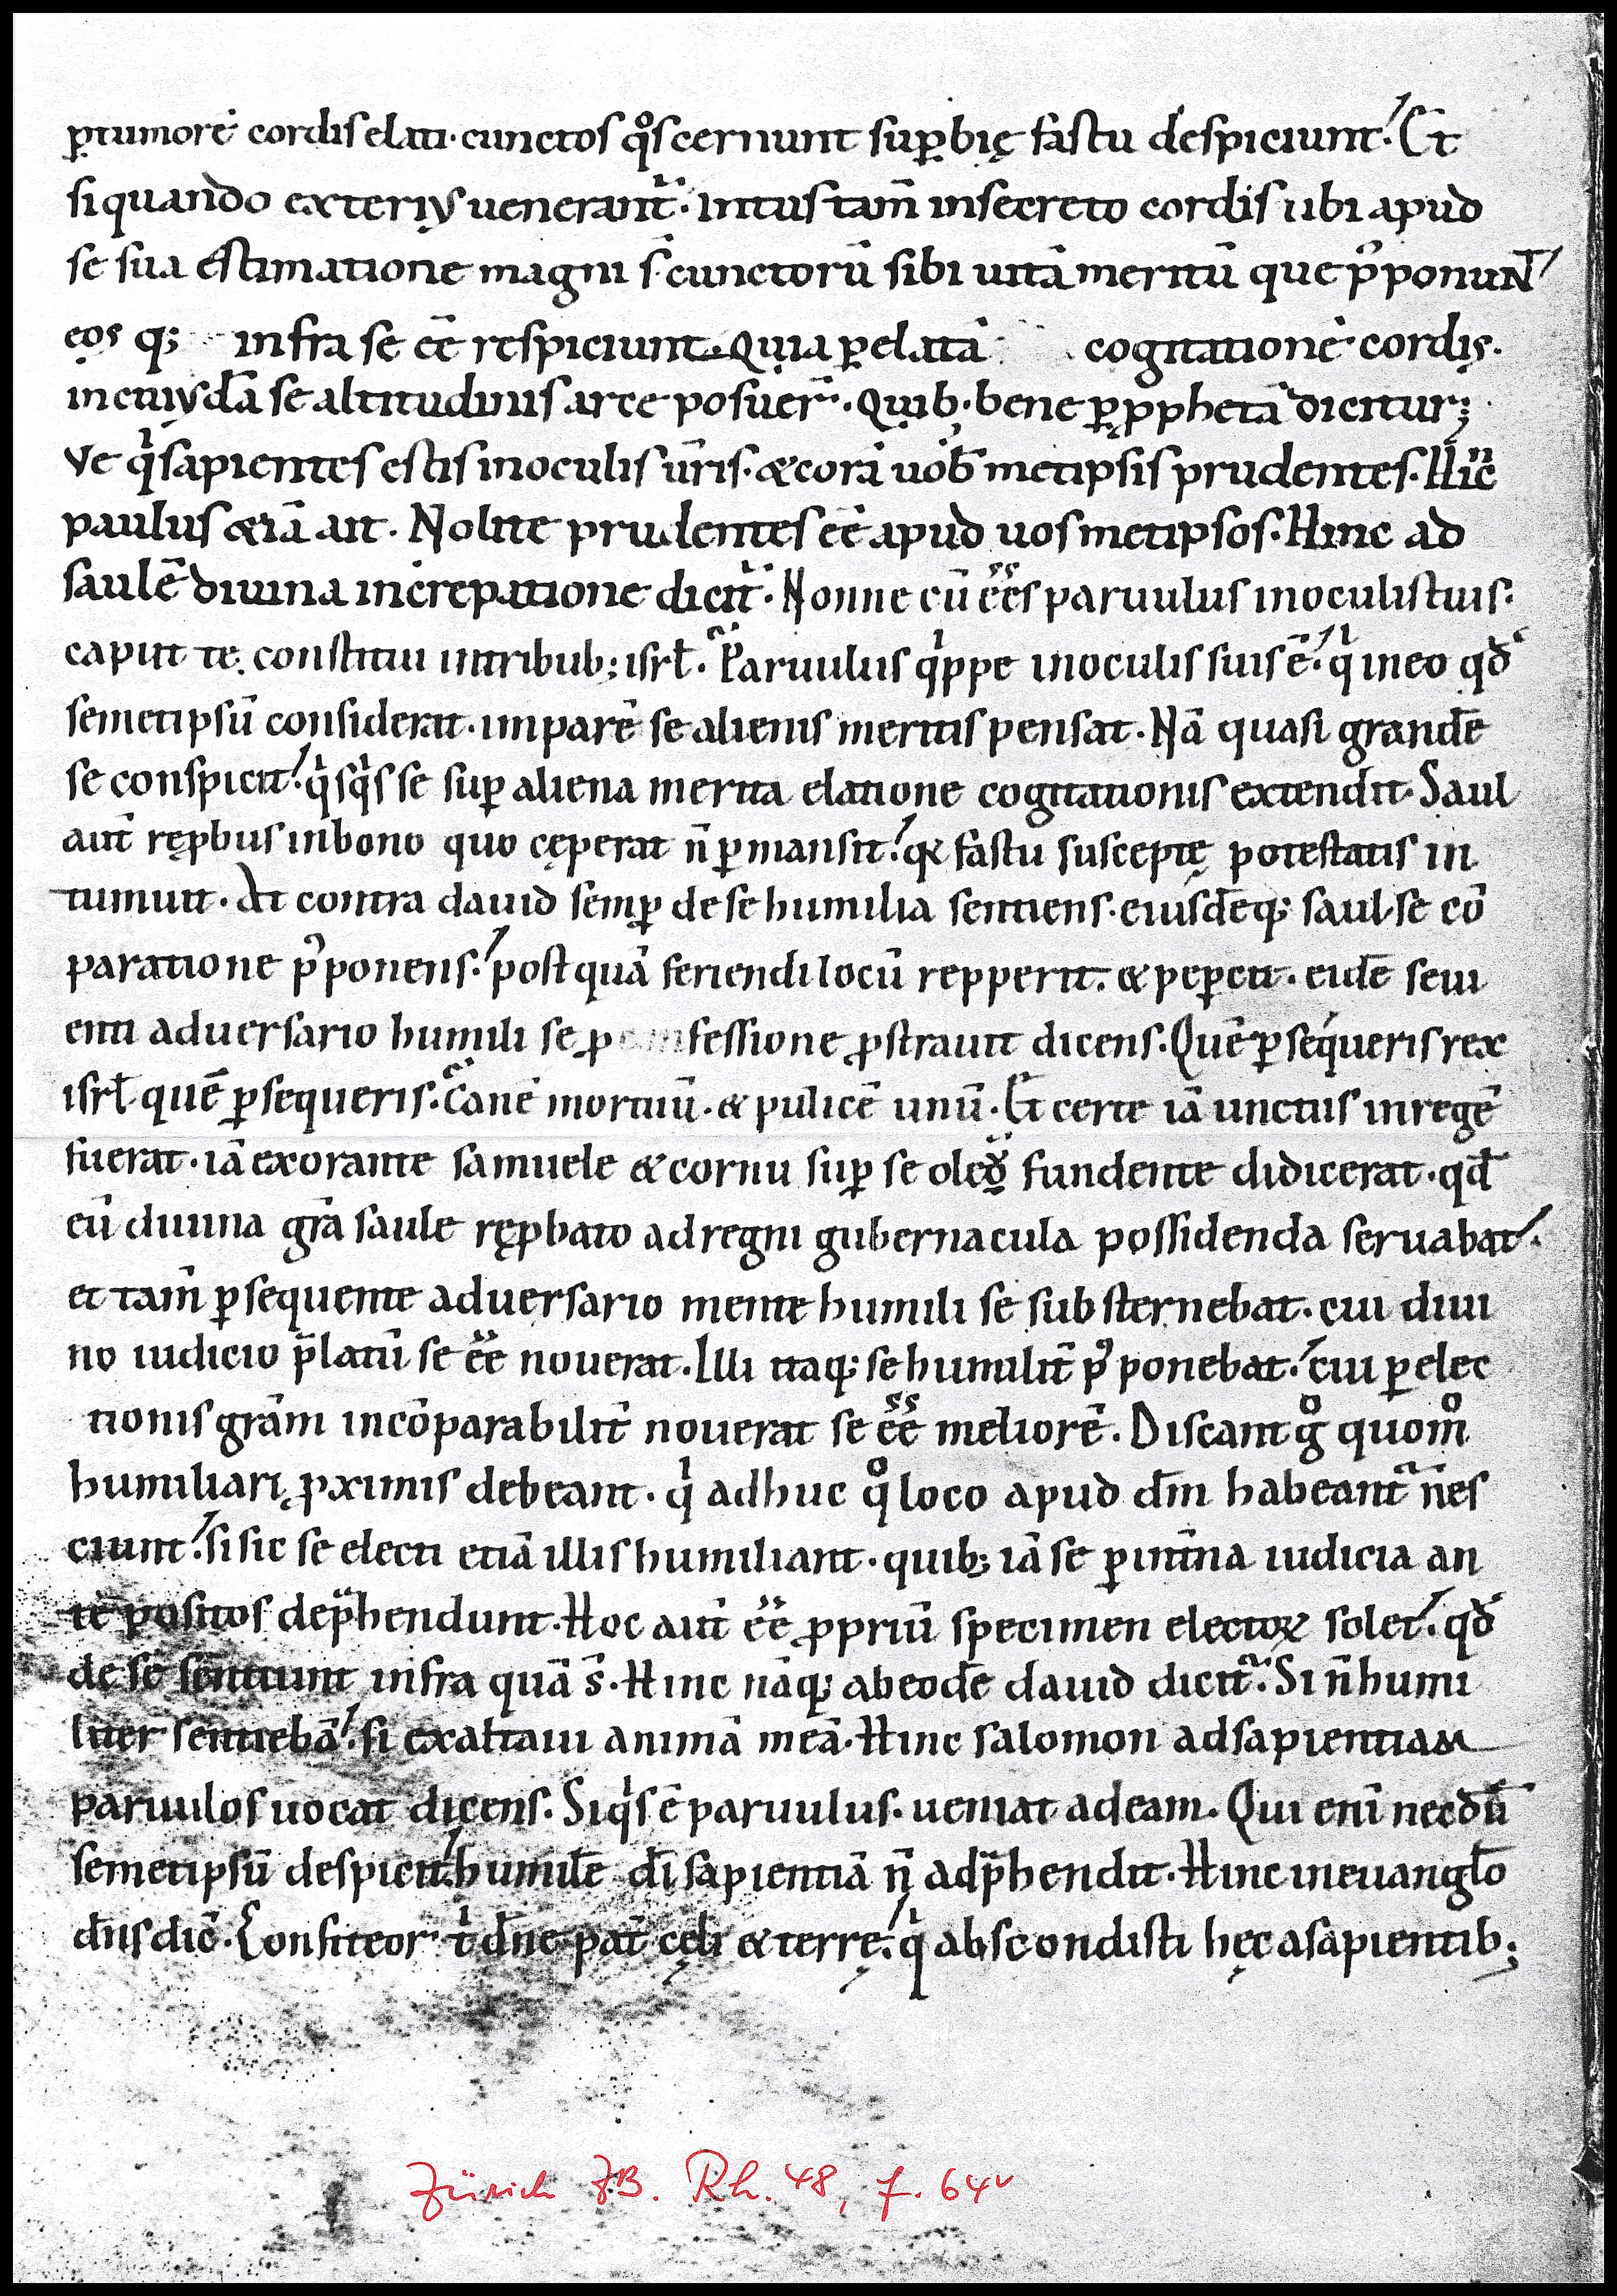 ꝑtumorē cordis elati · cunctos qͦs cernunt suꝑbię fastu despiciunt. Et
si quando exteriꝰ uenerant᷑ · intus tam̄ in secreto cordis ubi apud
se sua estimatione magni s̄ cunctorū sibi uitā meritū que p̄ponuNT
eos q; infra se eē respiciunt. Quia ꝑ elatā cogitationē cordis.
in cuiꝰdā se altitudinis arce posuer̄. Quib · bene ꝑ ꝓphetā dicitur;
Ve qͥ sapientes estis in oculis ur̄is. & corā uob̄ metipsis prudentes. Hinc̄
paulus &iā ait. Nolite prudentes eē apud uosmetipsos. Hinc ad
saulē diuina increpatione dicit᷑. Nonne cū eēs paruulus in oculis tuis.
caput te constitui in tribub; isrł. Paruulus qͥppe in oculis suis ē. qͥ in eo qđ
semetipsū considerat. imparē se alienis meritis pensat. Nā quasi grandē
se conspicit. qͥsqͥs se suꝑ aliena merita elatione cogitationis extendit. Saul
aut̄ ręꝓbus in bono quo cęperat n̄ ꝑmansit. q& fastu susceptę potestatis in
tumuit. At contra dauid semꝑ de se humilia sentiens. eiusdēq; saul se cō
paratione p̄ponens. postquā feriendi locū repperit. & peꝑcit. eidē seui
enti aduersario humili se ꝓ confessione ꝓstrauit dicens. Quē ꝑsequeris rex
isrł quē ꝑsequeris. Canē mortuū. & pulicē unū. Et certe iā unctus in regē
fuerat. iā exorante samuele & cornu suꝑ se oleū fundente didicerat. qđ
eū diuina gr̄a saule ręꝓbato ad regni gubernacula possidenda seruabat.
et tam̄ ꝑsequente aduersario mente humili se substernebat. cui diui
no iudicio p̄latū se eē nouerat. Illi itaq; se humilit̄ pꝰponebat. cui ꝑ elec
tionis gr̄am incōparabilit̄ nouerat se eē meliorē. Discant gͦ quom̊
humiliari ꝓximis debeant. qͥ adhuc qͦ loco apud dm̄ habeant᷑ nes
ciunt. si sic se electi etiā illis humiliant. quib; iā se ꝑ int̄na iudicia an
te positos dep̄hendunt. Hoc aut̄ eē ꝓpriū specimen electoꝝ solet. qđ
de se sentiunt infra quā s̄. Hinc nāq; ab eodē dauid dicit᷑. Si n̄ humi
liter sentiebā. si exaltaui animā meā. Hinc salomon ad sapientiam
paruulos uocat dicens. Siqͥs ē paruulus. ueniat ad eam. Qui enī necdū
semetipsū despicit. humilē dī sapientiā n̄ adp̄hendit. Hinc in euangł̄o
dn̄s dic̄. Confiteor tͥ dn̄e pat̄ cęli & terrę. qͥ abscondisti hęc a sapientib;
Zürich ZB. Rh. 48, f. 64v